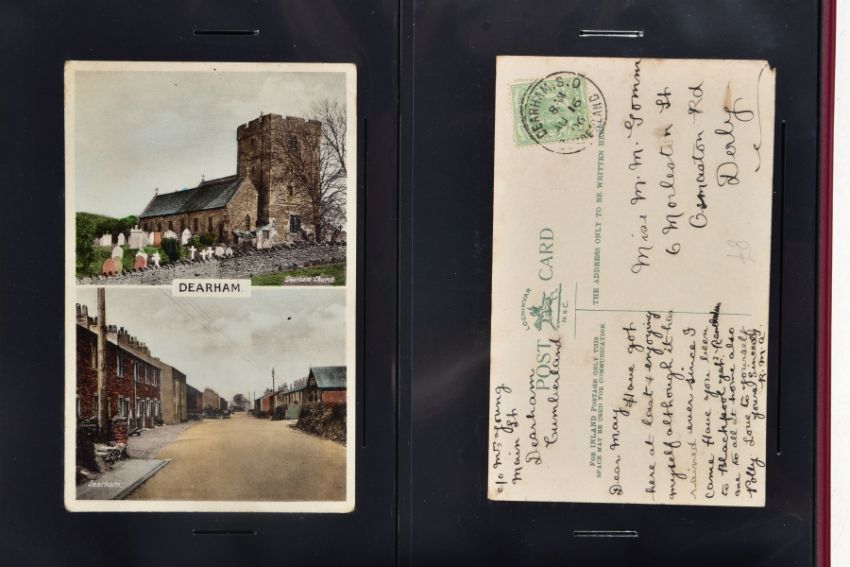 Dearham Church
DEARHAM.
Dearham.
DEARHAM S.O
8
AU 16
16
CUMBERLAND
POST CARD
LOCHINVAR
N. & C.
THE ADDRESS ONLY TO BE WRITTEN HERE
FOR INLAND POSTAGE ONLY THIS
SPACE MAY BE USED FOR COMMUNICATION.
c/o Mrs Young
Main St
Dearham
Cumberland
Dear May Have got
here at least & enjoying
myself although it has
rained ever since I
came Have you been
to Blackpool yet.
me to all at home also
Polly Love to yourself
yours Sincerely
R.M.A.
Miss M. M. Gomm
6 Morleston St
Osmaston Rd
Derby
£8